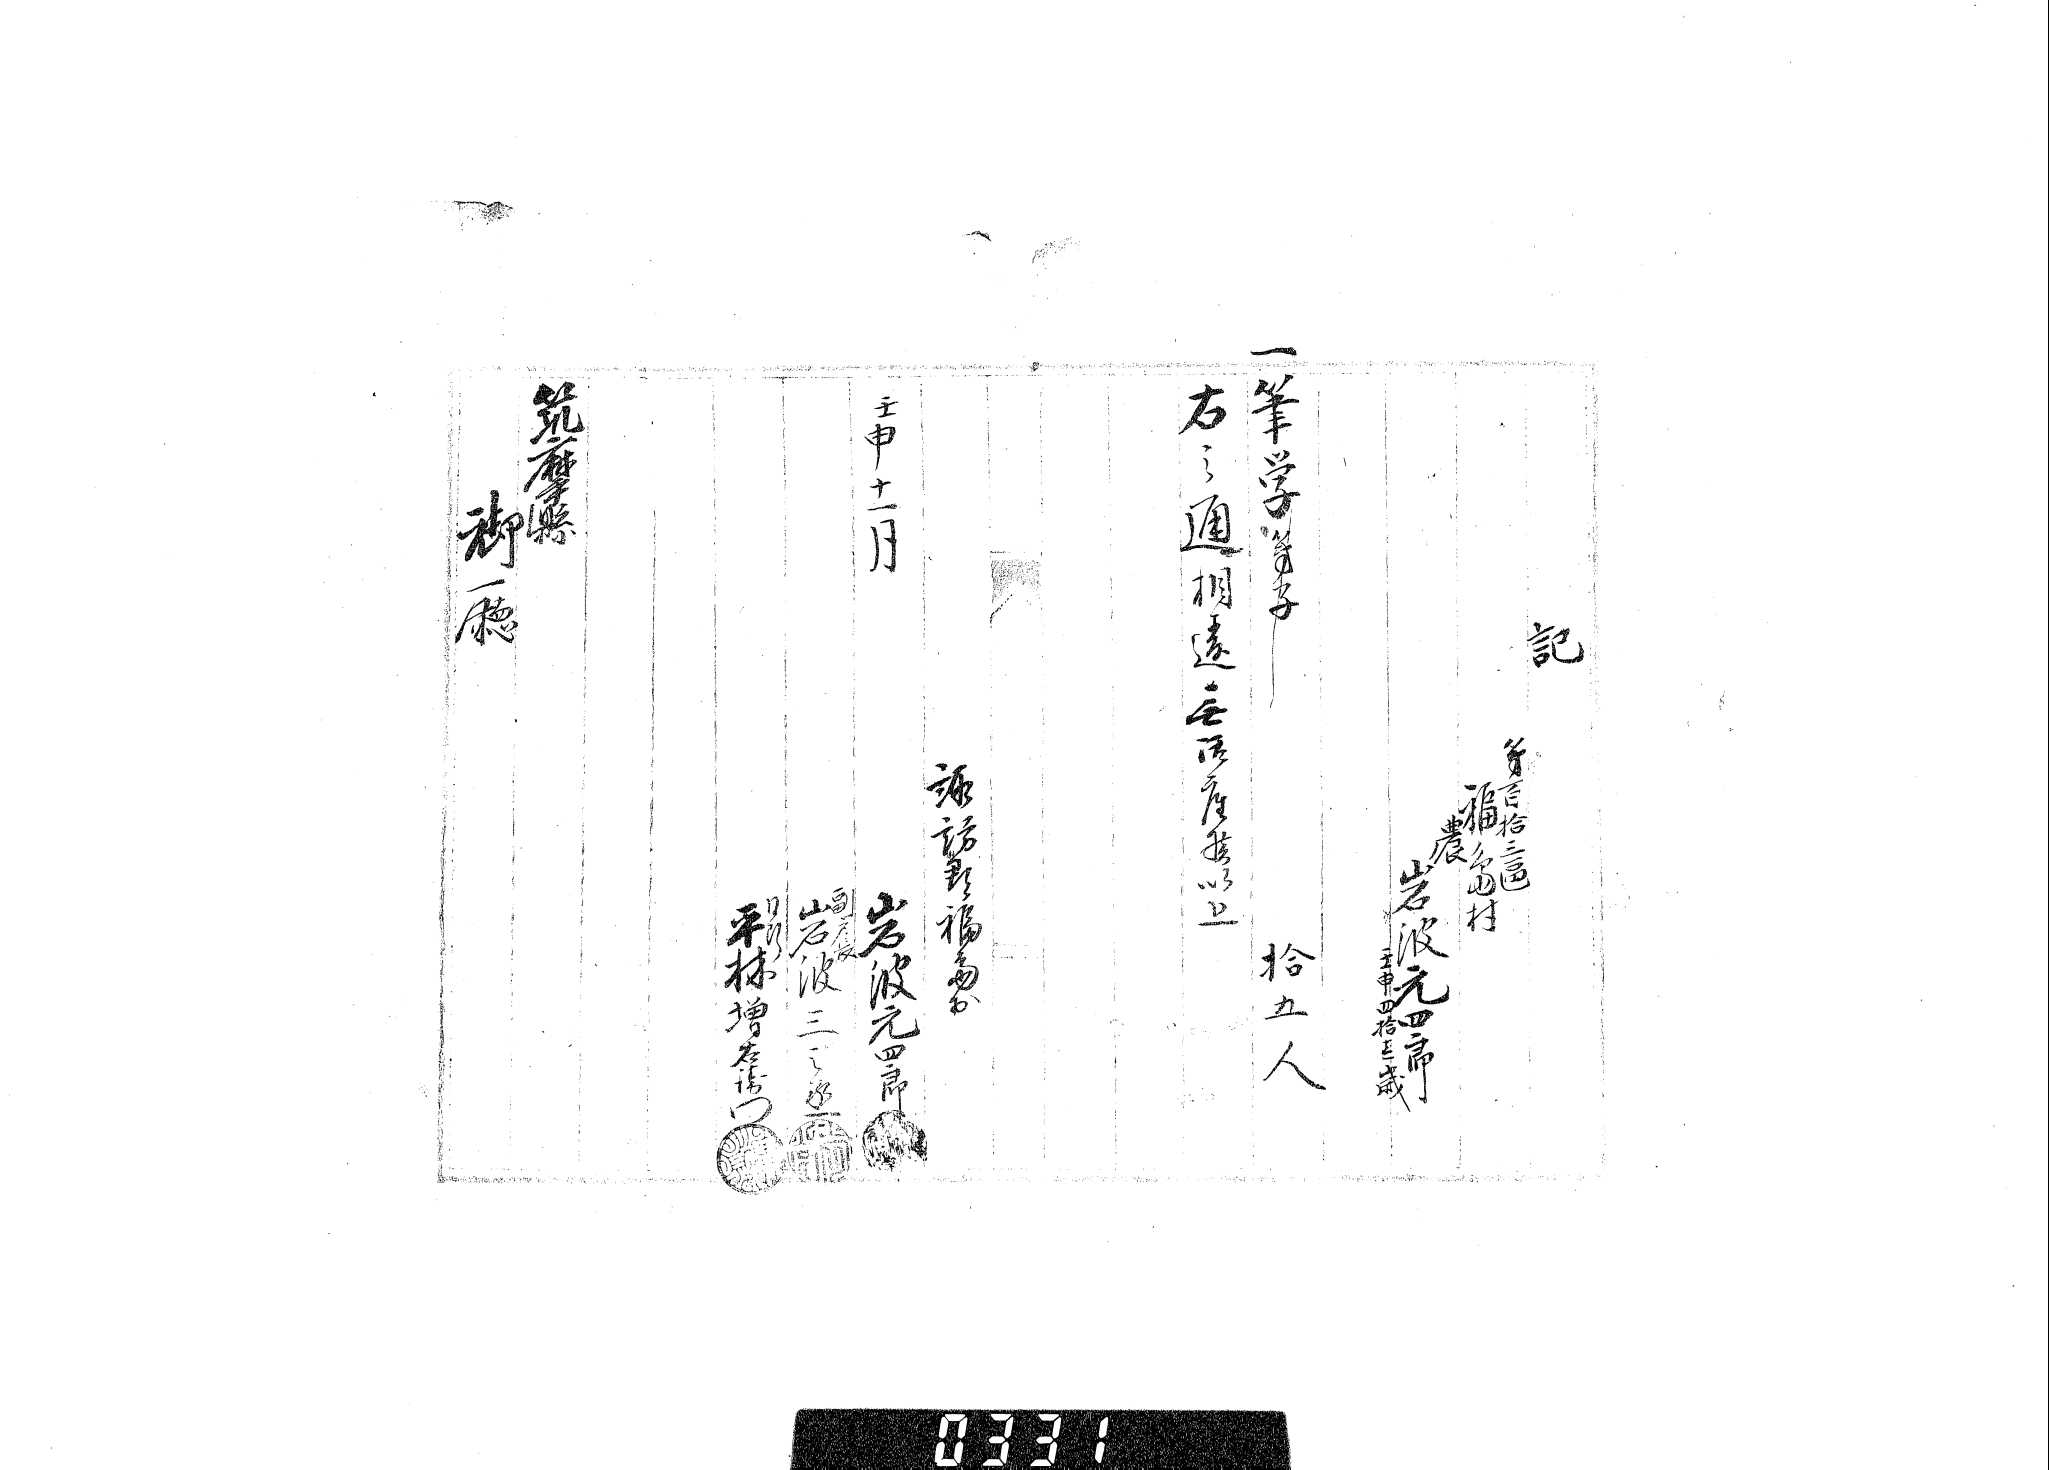 記
第百拾三區
福島村
農
岩波元四郎
壬申四拾三歳
一筆学筆子
拾五人
右之通相違無御座候以上
諏訪郡福島村
壬申十一月
岩波元四郎
副戸長
岩波三之丞
同断
平林増右衛門
筑摩縣
御廳
0331